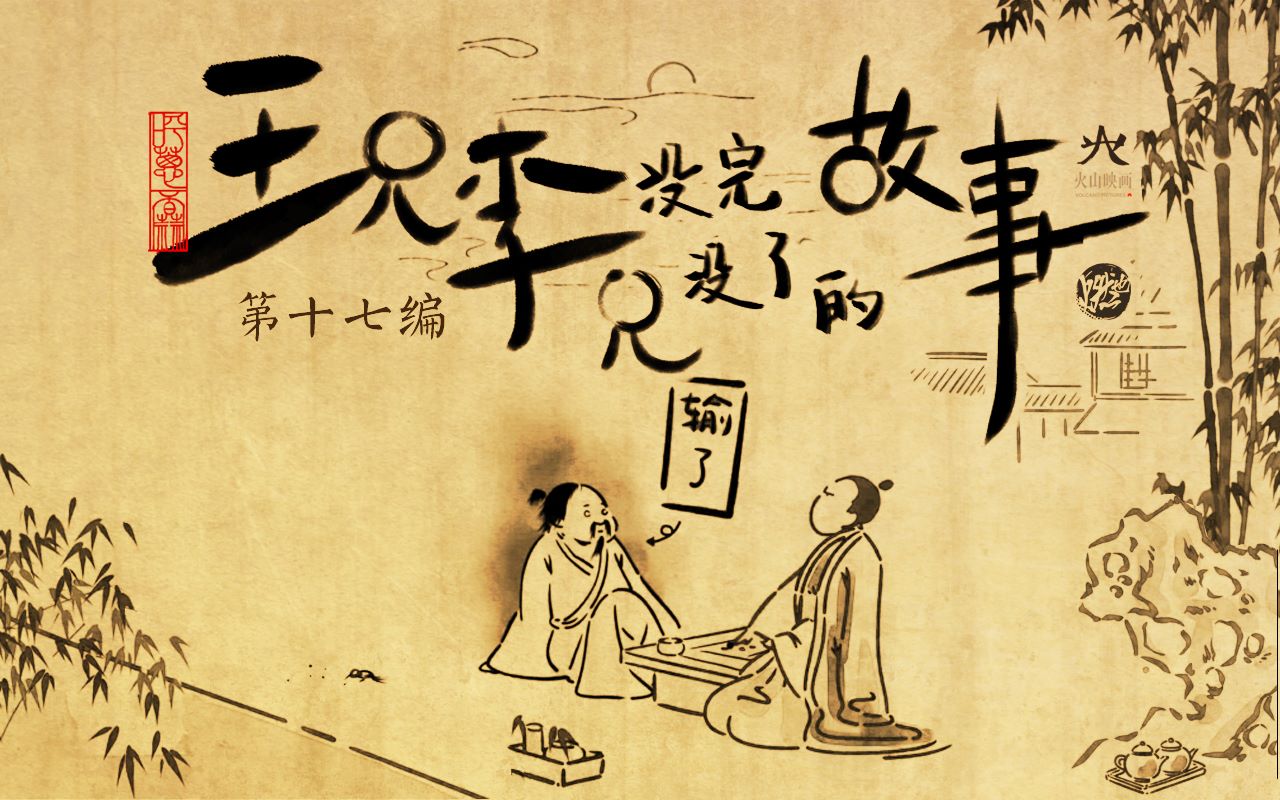 王兄李兄没完没了的故事
第十七编
输了
火山映画
VOLCANO PICTURES